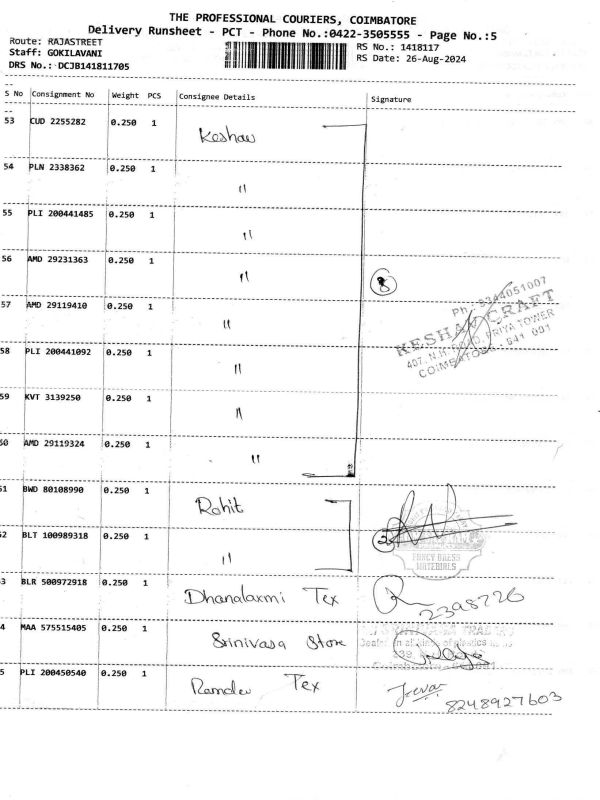 THE PROFESSIONAL COURIERS, COIMBATORE
Delivery Runsheet - PCT - Phone No.:0422-3505555 - Page No.:5
Route: RAJASTREET
Staff: GOKILAVANI
DRS No.: DCJB141811705
RS No.: 1418117
RS Date: 26-Aug-2024
S No Consignment No Weight PCS Consignee Details Signature
53 CUD 2255282 0.250 1 Keshav
54 PLN 2338362 0.250 1 "
55 PLI 200441485 0.250 1 "
56 AMD 29231363 0.250 1 " 8
57 AMD 29119410 0.250 1 "
Ph: 9344051007
KESHAV CRAFT
407, N.H. ROAD, PRIYA TOWER
COIMBATORE - 641 001
58 PLI 200441092 0.250 1 "
59 KVT 3139250 0.250 1 "
60 AMD 29119324 0.250 1 "
61 BWD 80108990 0.250 1 Rohit
62 BLT 100989318 0.250 1 " 2
FANCY DRESS
MATERIALS
63 BLR 500972918 0.250 1 Dhanalaxmi Tex 2398726
64 MAA 575515405 0.250 1 Srinivasa Store
65 PLI 200450540 0.250 1 Ramdev Tex Jevar 8248927603